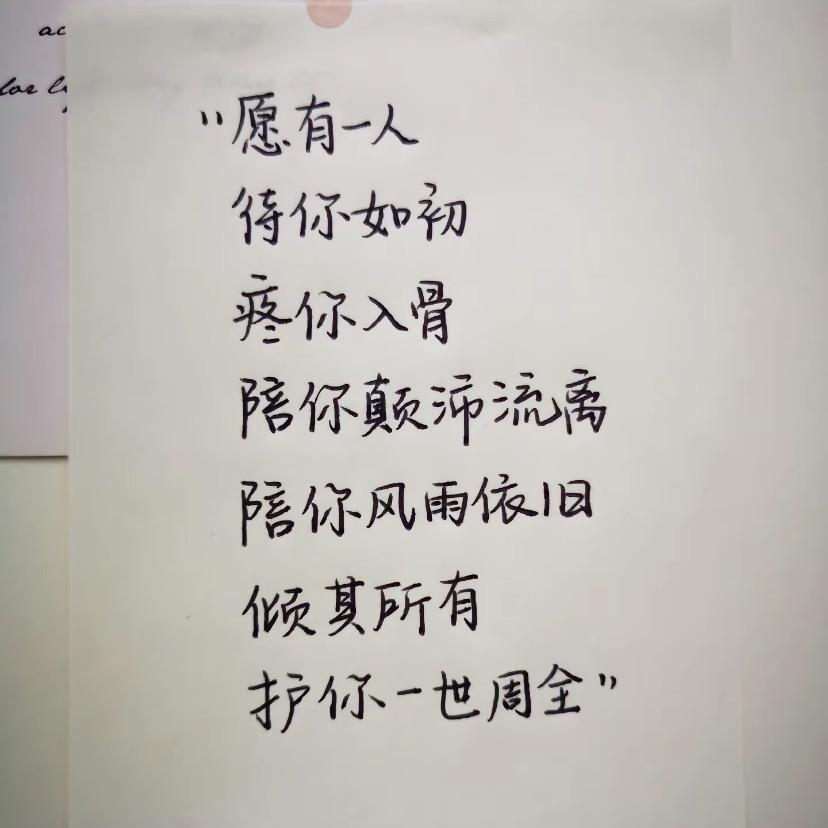 "愿有一人
待你如初
疼你入骨
陪你颠沛流离
陪你风雨依旧
倾其所有
护你一世周全"